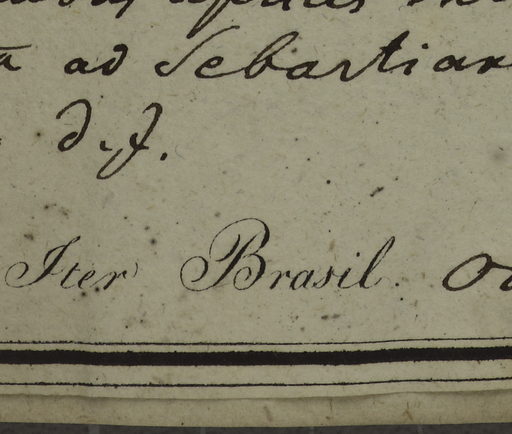 ad Sebastian
d. J.
Iter Brasil. O